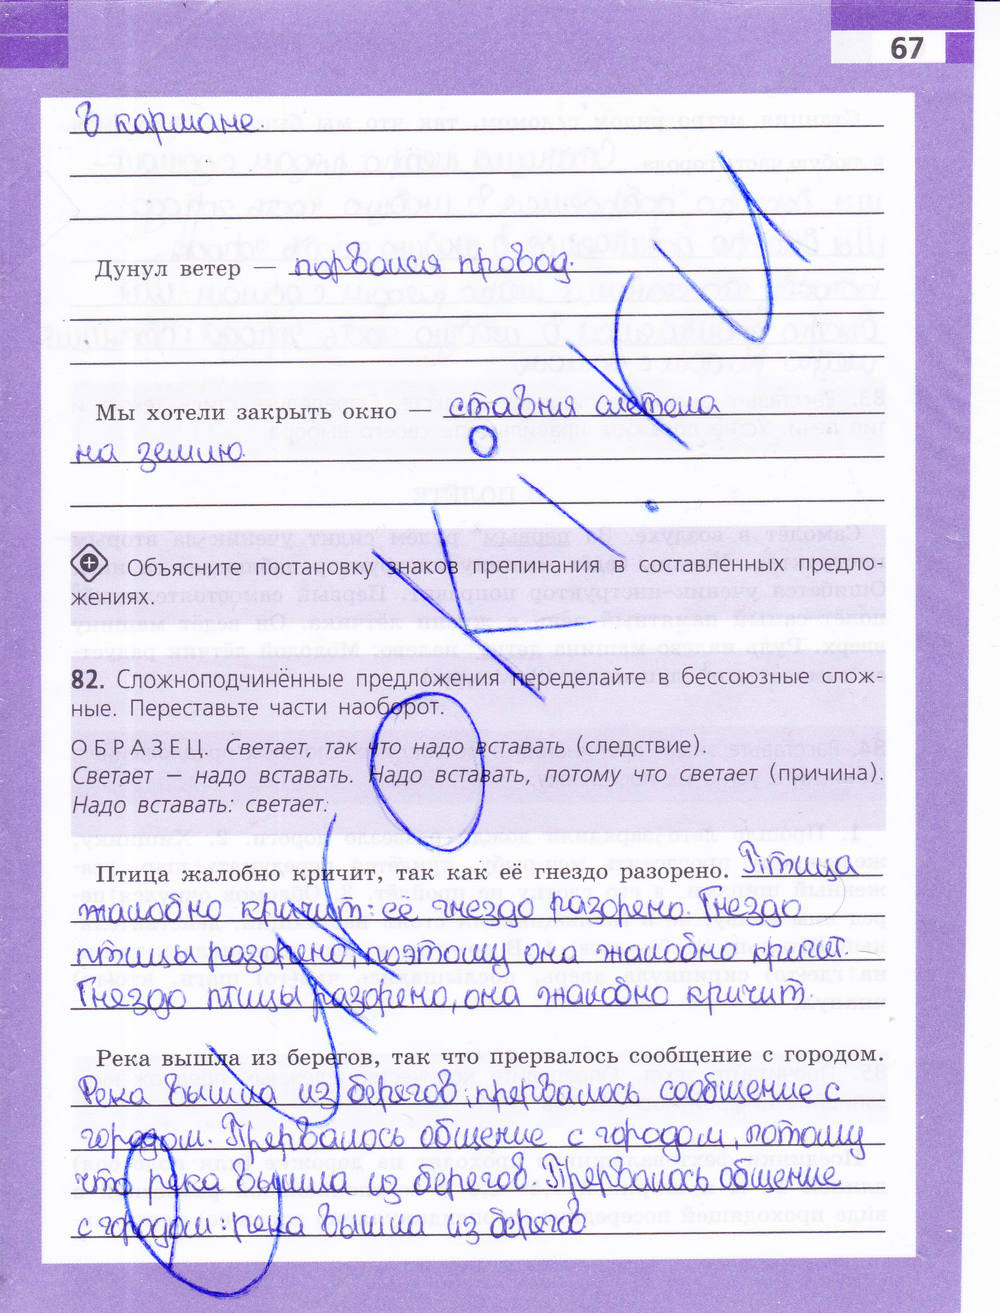 67
в кармане.
Дунул ветер — порвался провод.
Мы хотели закрыть окно — ставня слетела
на землю.
Объясните постановку знаков препинания в составленных предло-
жениях.
82. Сложноподчинённые предложения переделайте в бессоюзные слож-
ные. Переставьте части наоборот.
ОБРАЗЕЦ. Светает, так что надо вставать (следствие).
Светает — надо вставать. Надо вставать, потому что светает (причина).
Надо вставать: светает.
Птица жалобно кричит, так как её гнездо разорено. Птица
жалобно кричит: её гнездо разорено. Гнездо
птицы разорено, поэтому она жалобно кричит.
Гнездо птицы разорено, она жалобно кричит.
Река вышла из берегов, так что прервалось сообщение с городом.
Река вышла из берегов: прервалось сообщение с
городом. Прервалось общение с городом, потому
что река вышла из берегов. Прервалось общение
с городом: река вышла из берегов